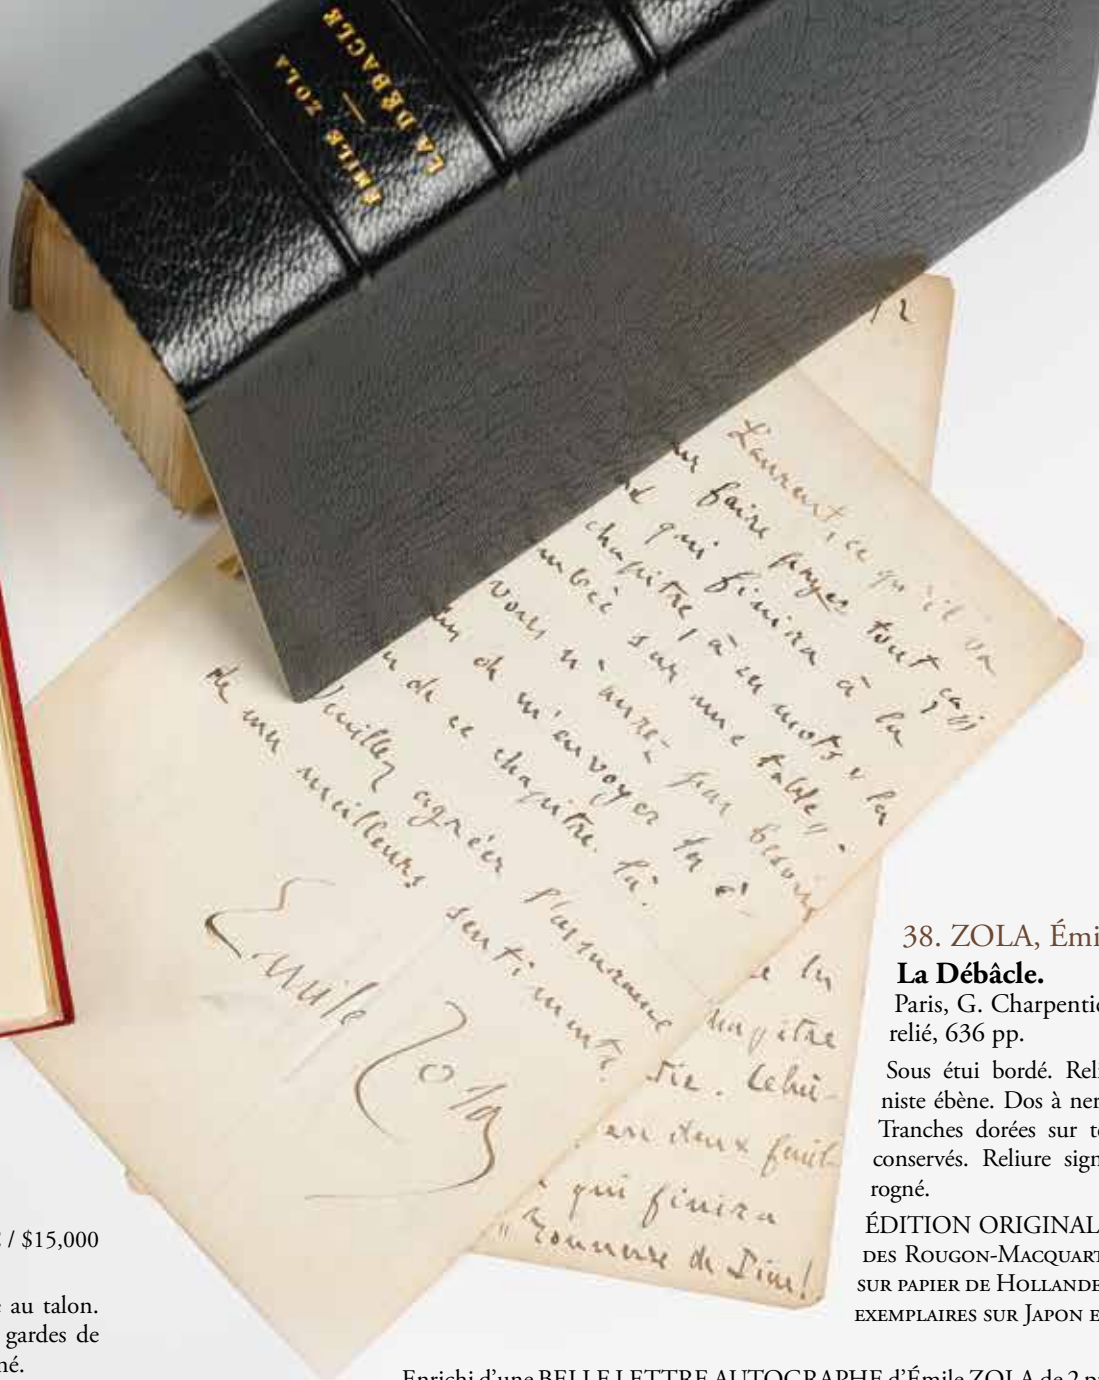 ÉMILE ZOLA
LA DÉBACLE
12
Laurent, ce qu'il va
faire payer tout ça,
qui finira à la
chapitre, à ces mots « la
sur une table ».
vous n'aurez pas besoin
de m'envoyer la
de ce chapitre-là.
Veuillez agréer l'assurance
de mes meilleurs sentiments.
Emile Zola
la
chapitre
Celui-
deux feuil-
qui finira
Tonnerre de Dieu!
38. ZOLA, Émi
La Débâcle.
Paris, G. Charpentie
relié, 636 pp.
Sous étui bordé. Reli
niste ébène. Dos à ner
Tranches dorées sur t
conservés. Reliure sign
rogné.
ÉDITION ORIGINAL
DES ROUGON-MACQUART
SUR PAPIER DE HOLLANDE
EXEMPLAIRES SUR JAPON E
/ $15,000
au talon.
gardes de
né.
Enrichi d'une BELLE LETTRE AUTOGRAPHE d'Émile ZOLA de 2 p